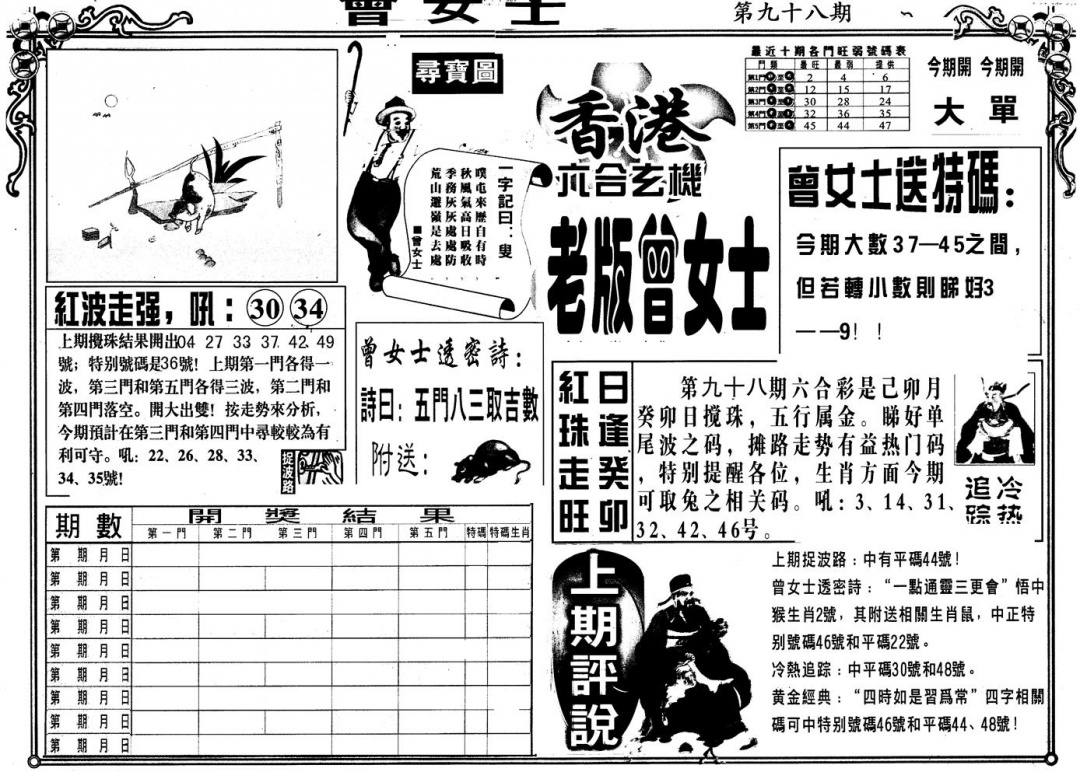 曾女士
第九十八期
最近十期各門旺弱號碼表
門類 最旺 最弱 提供
第1門 至 2 4 6
第2門 至 12 15 17
第3門 至 30 28 24
第4門 至 32 36 35
第5門 至 45 44 47
今期開 今期開
大 單
尋寶圖
一字記曰：叟
噗屯來歷自有時
秋風氣高日吸收
季務灰灰處處防
荒山邐嶺是去處
■曾女士
香港
六合玄機
老版曾女士
曾女士送特碼：
今期大數37—45之間，
但若轉小數則睇好3
——9！！
紅波走强，吼：30 34
上期攪珠結果開出04 27 33 37 42 49
號；特别號碼是36號！上期第一門各得一
波，第三門和第五門各得三波，第二門和
第四門落空。開大出雙！按走勢來分析，
今期預計在第三門和第四門中尋較較為有
利可守。吼：22、26、28、33、
34、35號！
捉波路
曾女士透密詩：
詩曰：五門八三取吉數
附送：
日逢癸卯
紅珠走旺
第九十八期六合彩是己卯月
癸卯日搅珠，五行属金。睇好单
尾波之码，摊路走势有益热门码
，特别提醒各位，生肖方面今期
可取兔之相关码。吼：3、14、31、
32、42、46号。
冷热
追踪
期數 開獎結果
第一門 第二門 第三門 第四門 第五門 特碼 特碼生肖
第 期 月 日
第 期 月 日
第 期 月 日
第 期 月 日
第 期 月 日
第 期 月 日
第 期 月 日
第 期 月 日
第 期 月 日
上期評説
上期捉波路：中有平碼44號！
曾女士透密詩：“一點通靈三更會”悟中
猴生肖2號，其附送相關生肖鼠，中正特
别號碼46號和平碼22號。
冷熱追踪：中平碼30號和48號。
黄金經典：“四時如是習爲常”四字相關
碼可中特别號碼46號和平碼44、48號！